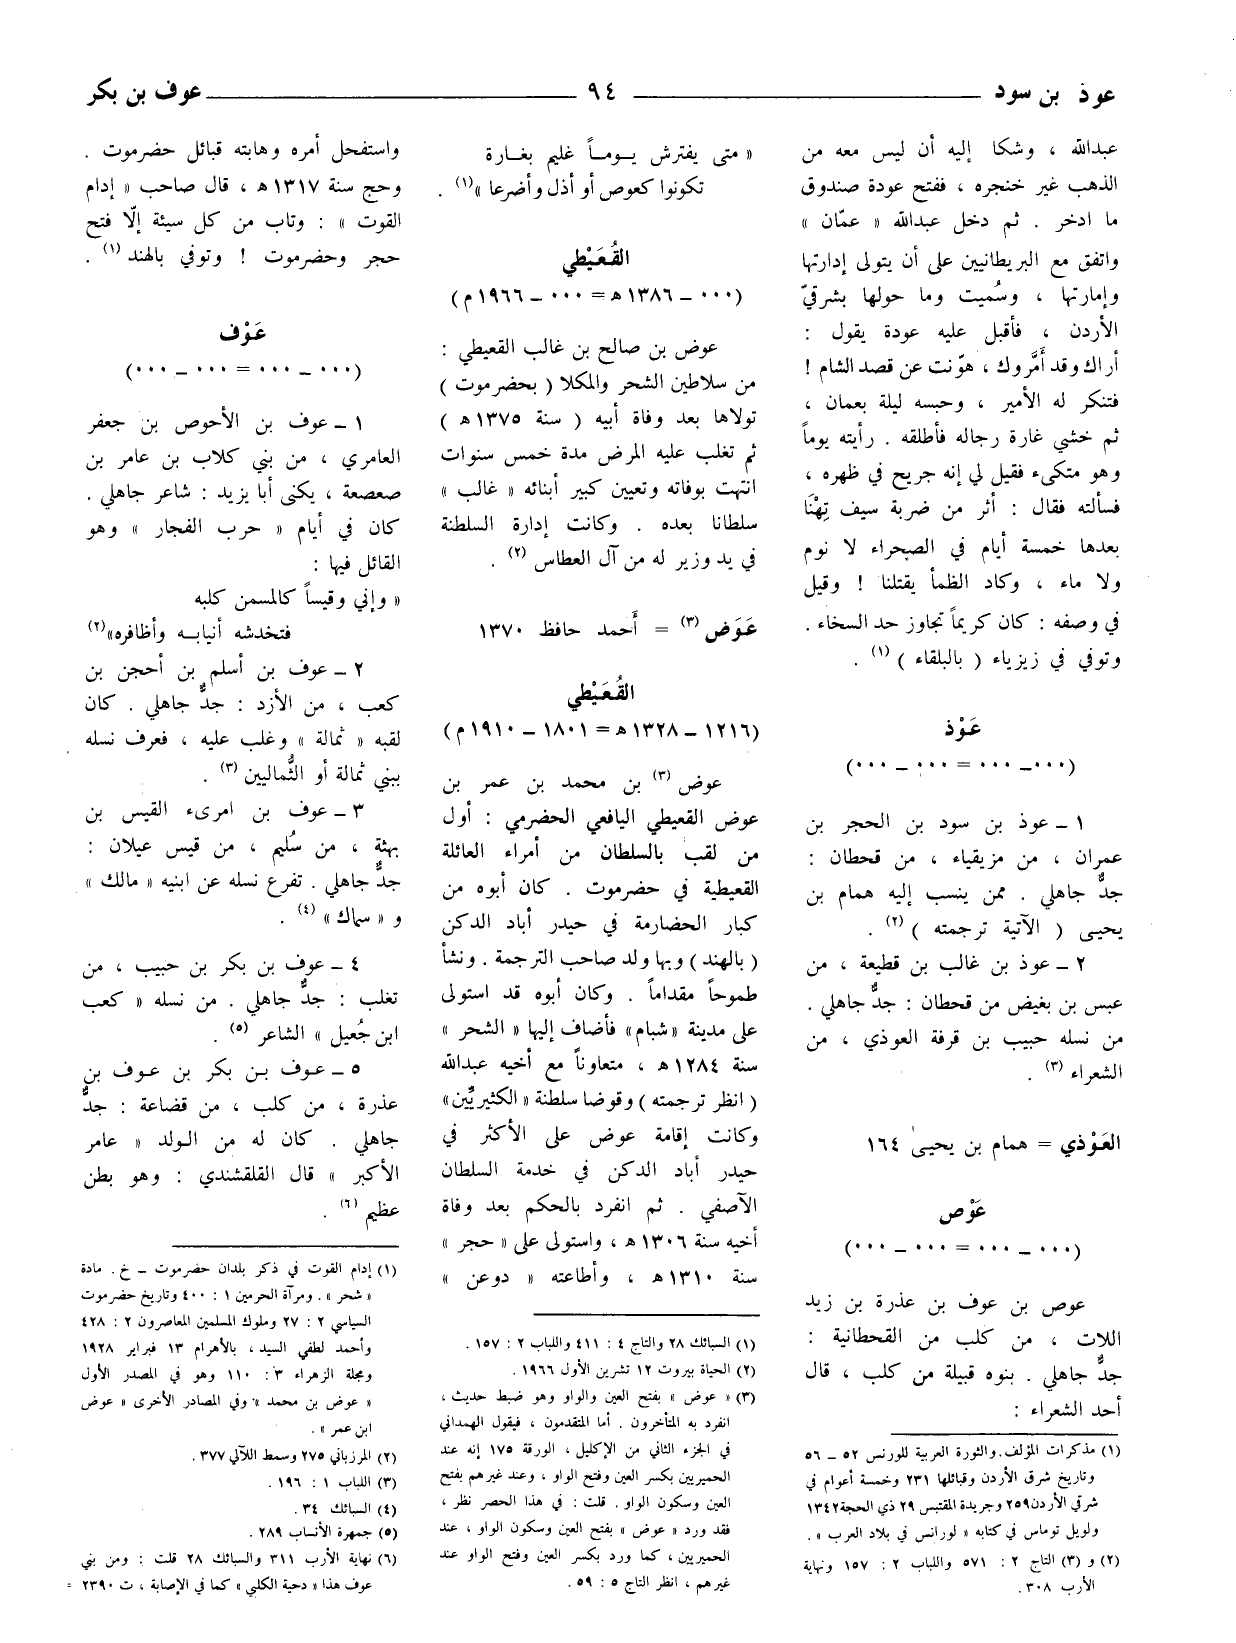 عوذ بن سود
٩٤
عوف بن بكر
عبدالله ، وشكا إليه أن ليس معه من
الذهب غير خنجره ، ففتح عودة صندوق
ما ادخر . ثم دخل عبدالله « عمّان »
واتفق مع البريطانيين على أن يتولى إدارتها
وإمارتها ، وسُميت وما حولها بشرقيّ
الأردن ، فأقبل عليه عودة يقول :
أراك وقد أمَّروك ، هوّنت عن قصد الشام !
فتنكر له الأمير ، وحبسه ليلة بعمان ،
ثم خشي غارة رجاله فأطلقه . رأيته يوماً
وهو متكىء فقيل لي إنه جريح في ظهره ،
فسألته فقال : أثر من ضربة سيف تِهْنَا
بعدها خمسة أيام في الصحراء لا نوم
ولا ماء ، وكاد الظمأ يقتلنا ! وقيل
في وصفه : كان كريماً تجاوز حد السخاء .
وتوفي في زيزياء ( بالبلقاء ) (١) .
عَوْذ
(٠٠٠ــ ٠٠٠ = ٠٠٠ ــ ٠٠٠)
١ ــ عوذ بن سود بن الحجر بن
عمران ، من مزيقياء ، من قحطان :
جدٌّ جاهلي . ممن ينسب إليه همام بن
يحيى ( الآتية ترجمته ) (٢) .
٢ ــ عوذ بن غالب بن قطيعة ، من
عبس بن بغيض من قحطان : جدٌّ جاهلي .
من نسله حبيب بن قرفة العوذي ، من
الشعراء (٣) .
العَوْذي = همام بن يحيىٰ ١٦٤
عَوْص
(٠٠٠ ــ ٠٠٠ = ٠٠٠ ــ ٠٠٠)
عوص بن عوف بن عذرة بن زيد
اللات ، من كلب من القحطانية :
جدٌّ جاهلي . بنوه قبيلة من كلب ، قال
أحد الشعراء :
(١) مذكرات المؤلف. والثورة العربية للورنس ٥٢ ــ ٥٦
وتاريخ شرق الأردن وقبائلها ٢٣١ وخمسة أعوام في
شرقي الأردن ٢٥٩ وجريدة المقتبس ٢٩ ذي الحجة ١٣٤٢
ولويل توماس في كتابه « لورانس في بلاد العرب » .
(٢) و (٣) التاج ٢ : ٥٧١ واللباب ٢ : ١٥٧ ونهاية
الأرب ٣٠٨ .
« متى يفترش يـومـاً غليم بغـارة
تكونوا كعوص أو أذل وأضرعا »(١) .
القُعَيْطي
(٠٠٠ ــ ١٣٨٦ هـ = ٠٠٠ ــ ١٩٦٦ م)
عوض بن صالح بن غالب القعيطي :
من سلاطين الشحر والمكلا ( بحضرموت )
تولاها بعد وفاة أبيه ( سنة ١٣٧٥ هـ )
ثم تغلب عليه المرض مدة خمس سنوات
انتهت بوفاته وتعيين كبير أبنائه « غالب »
سلطانا بعده . وكانت إدارة السلطنة
في يد وزير له من آل العطاس (٢) .
عَوَض (٣) = أحمد حافظ ١٣٧٠
القُعَيْطي
(١٢١٦ ــ ١٣٢٨ هـ = ١٨٠١ ــ ١٩١٠ م)
عوض (٣) بن محمد بن عمر بن
عوض القعيطي اليافعي الحضرمي : أول
من لقب بالسلطان من أمراء العائلة
القعيطية في حضرموت . كان أبوه من
كبار الحضارمة في حيدر أباد الدكن
( بالهند ) وبها ولد صاحب الترجمة . ونشأ
طموحاً مقداماً . وكان أبوه قد استولى
على مدينة «شبام» فأضاف إليها « الشحر »
سنة ١٢٨٤ هـ ، متعاوناً مع أخيه عبدالله
( انظر ترجمته ) وقوضا سلطنة « الكثيريِّين»
وكانت إقامة عوض على الأكثر في
حيدر أباد الدكن في خدمة السلطان
الآصفي . ثم انفرد بالحكم بعد وفاة
أخيه سنة ١٣٠٦ هـ ، واستولى على « حجر »
سنة ١٣١٠ هـ ، وأطاعته « دوعن »
(١) السبائك ٢٨ والتاج ٤ : ٤١١ واللباب ٢ : ١٥٧ .
(٢) الحياة بيروت ١٢ تشرين الأول ١٩٦٦ .
(٣) « عوض » بفتح العين والواو وهو ضبط حديث ،
انفرد به المتأخرون . أما المتقدمون ، فيقول الهمداني
في الجزء الثاني من الإكليل ، الورقة ١٧٥ إنه عند
الحميريين بكسر العين وفتح الواو ، وعند غيرهم بفتح
العين وسكون الواو . قلت : في هذا الحصر نظر ،
فقد ورد « عوض » بفتح العين وسكون الواو ، عند
الحميريين ، كما ورد بكسر العين وفتح الواو عند
غيرهم ، انظر التاج ٥ : ٥٩ .
واستفحل أمره وهابته قبائل حضرموت .
وحج سنة ١٣١٧ هـ ، قال صاحب « إدام
القوت » : وتاب من كل سيئة إلّا فتح
حجر وحضرموت ! وتوفي بالهند (١) .
عَوْف
(٠٠٠ ــ ٠٠٠ = ٠٠٠ ــ ٠٠٠)
١ ــ عوف بن الأحوص بن جعفر
العامري ، من بني كلاب بن عامر بن
صعصعة ، يكنى أبا يزيد : شاعر جاهلي .
كان في أيام « حرب الفجار » وهو
القائل فيها :
« وإني وقيساً كالمسمن كلبه
فتخدشه أنيابـه وأظافره»(٢)
٢ ــ عوف بن أسلم بن أحجن بن
كعب ، من الأزد : جدٌّ جاهلي . كان
لقبه « ثمالة » وغلب عليه ، فعرف نسله
ببني ثمالة أو الثُّماليين (٣) .
٣ ــ عوف بن امرىء القيس بن
بهثة ، من سُليم ، من قيس عيلان :
جدٌّ جاهلي . تفرع نسله عن ابنيه « مالك »
و « سماك » (٤) .
٤ ــ عوف بن بكر بن حبيب ، من
تغلب : جدٌّ جاهلي . من نسله « كعب
ابن جُعيل » الشاعر (٥) .
٥ ــ عـوف بـن بكر بن عـوف بن
عذرة ، من كلب ، من قضاعة : جدٌّ
جاهلي . كان له من الـولد « عامر
الأكبر » قال القلقشندي : وهو بطن
عظيم (٦) .
(١) إدام القوت في ذكر بلدان حضرموت ــ خ . مادة
« شحر » . ومرآة الحرمين ١ : ٤٠٠ وتاريخ حضرموت
السياسي ٢ : ٢٧ وملوك المسلمين المعاصرون ٢ : ٤٢٨
وأحمد لطفي السيد ، بالأهرام ١٣ فبراير ١٩٢٨
ومجلة الزهراء ٣ : ١١٠ وهو في المصدر الأول
« عوض بن محمد » وفي المصادر الأخرى « عوض
ابن عمر » .
(٢) المرزباني ٢٧٥ وسمط اللآلي ٣٧٧ .
(٣) اللباب ١ : ١٩٦ .
(٤) السبائك ٣٤ .
(٥) جمهرة الأنساب ٢٨٩ .
(٦) نهاية الأرب ٣١١ والسبائك ٢٨ قلت : ومن بني
عوف هذا « دحية الكلبي » كما في الإصابة ، ت ٢٣٩٠ =